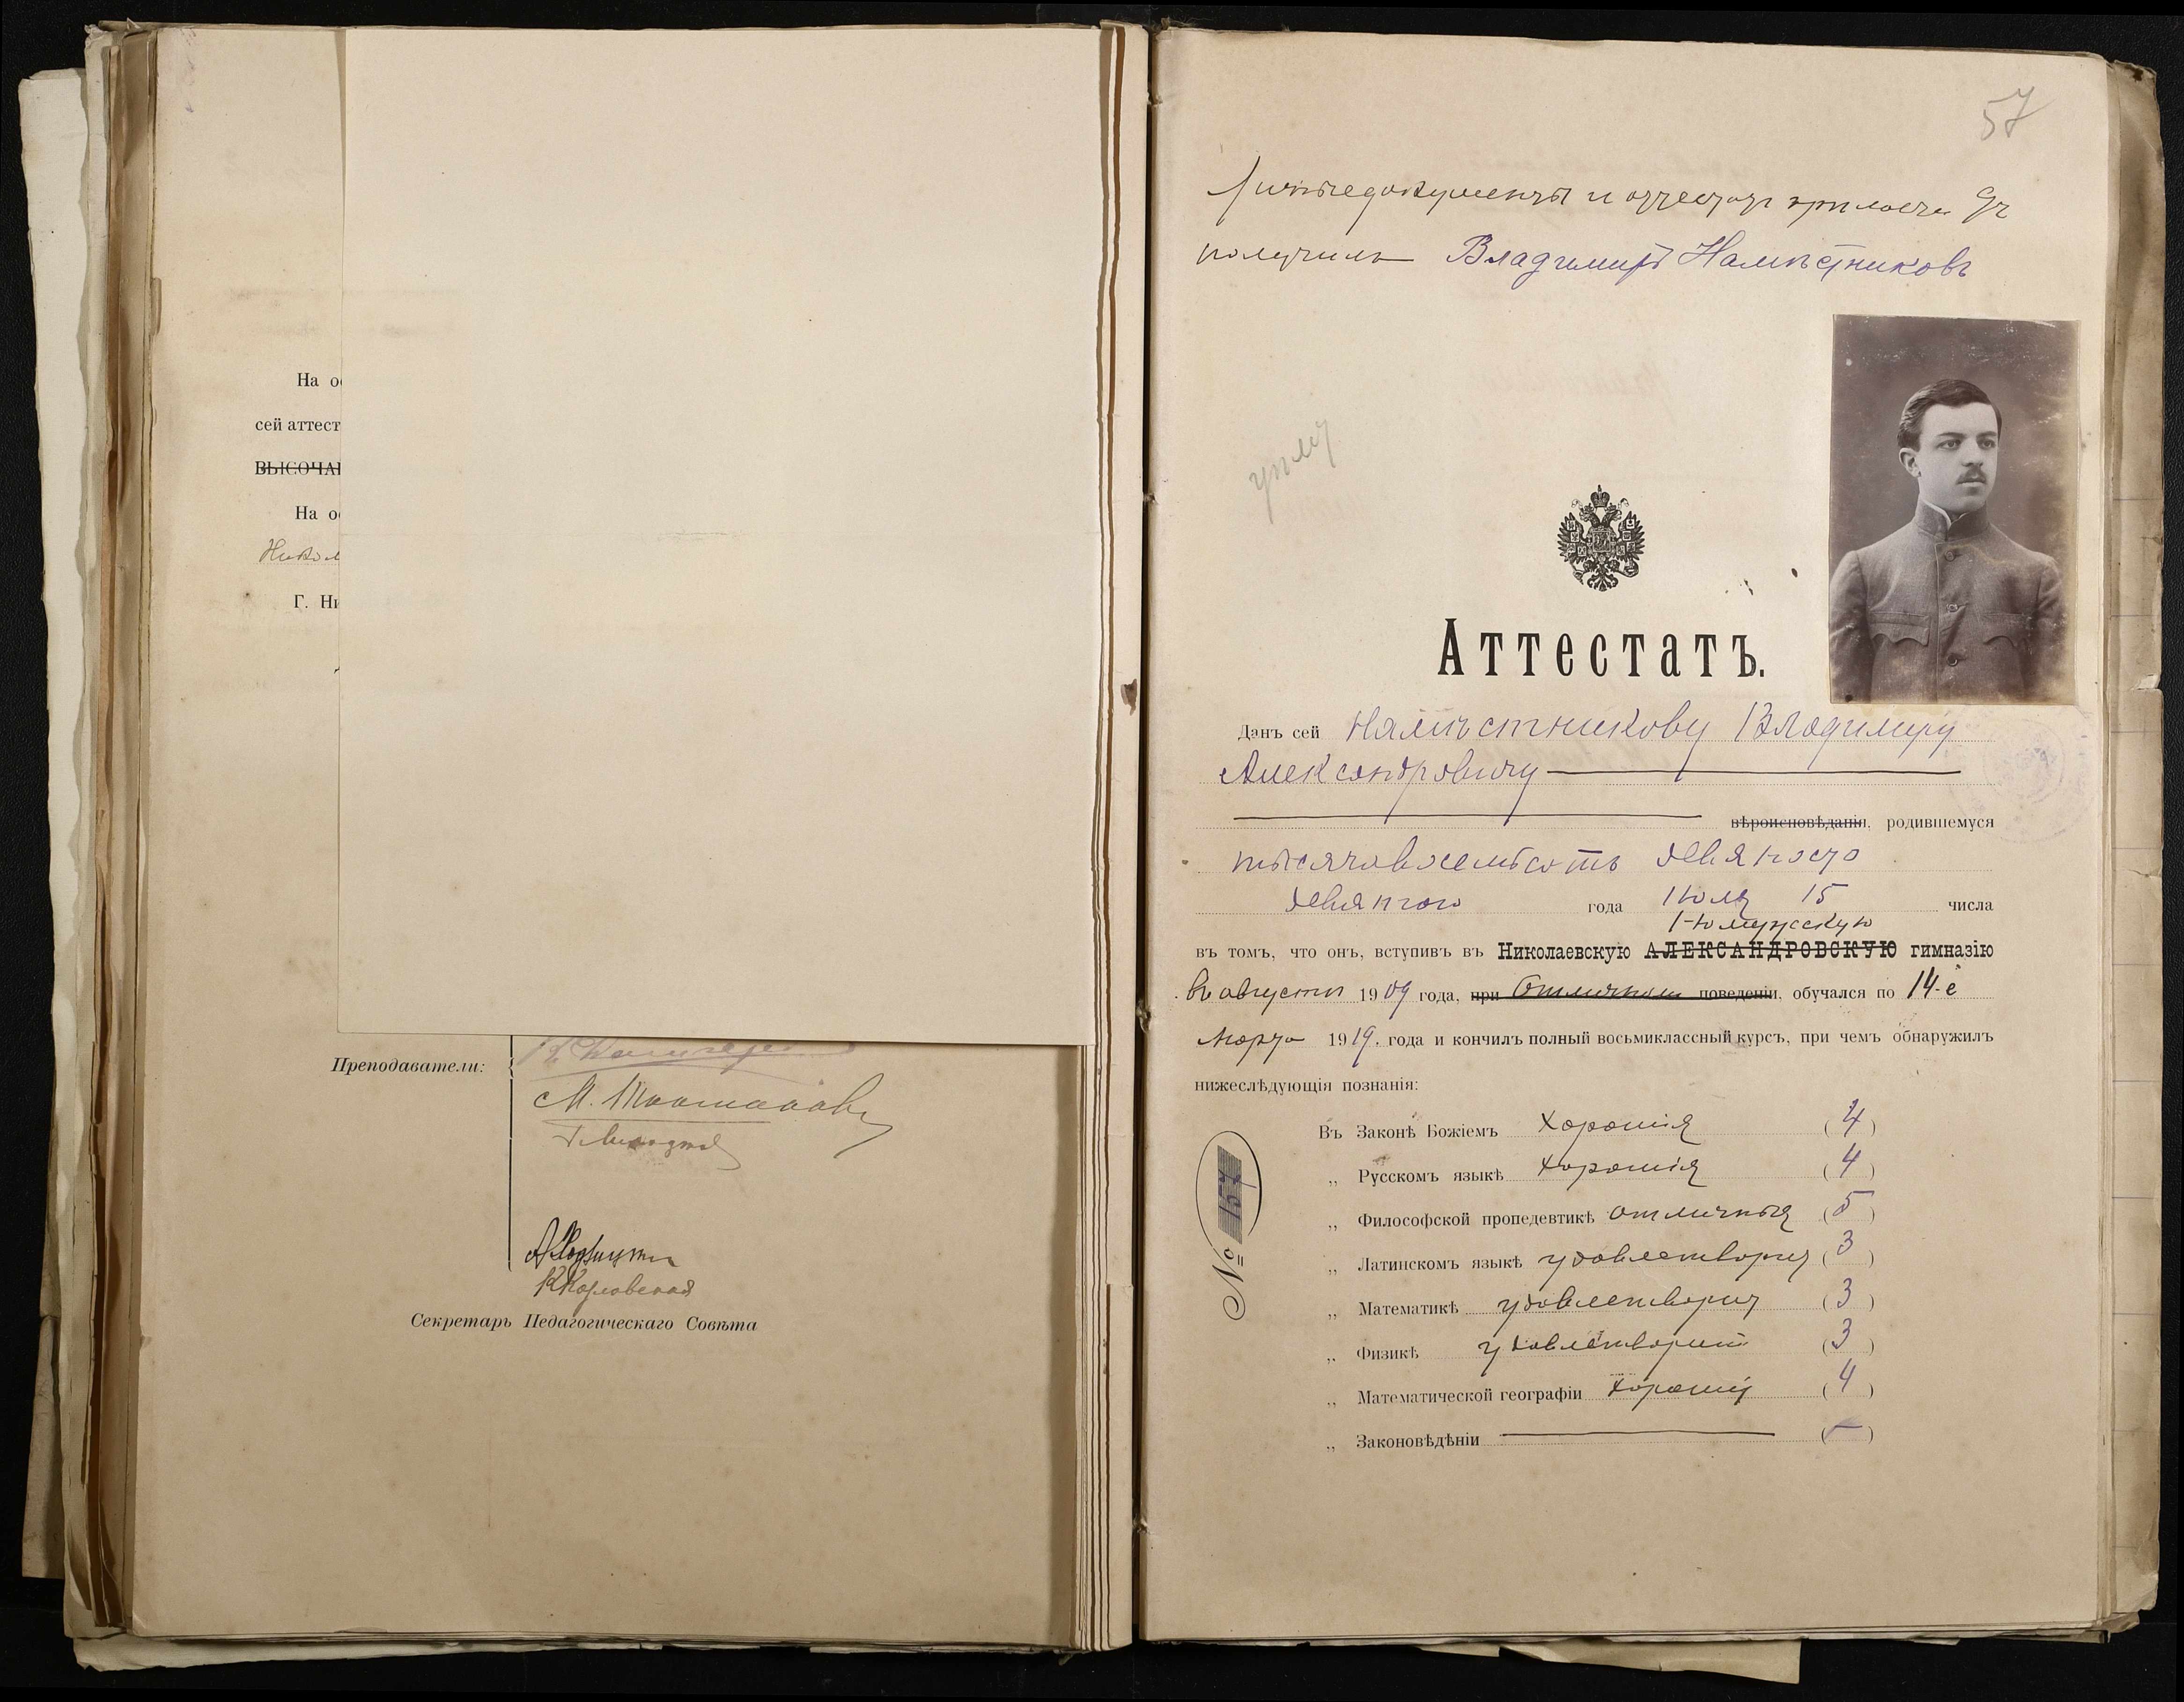 На ос
сей аттест
ВЫСОЧАЙ
На ос
Никол
Г. Ни
Преподаватели:
Секретарь Педагогическаго Совѣта
57
Личные документы и аттестат
получилъ Владимиръ Намѣстниковъ
Аттестатъ.
Данъ сей Намѣстникову Владимиру
Александровичу
вѣроисповѣданія, родившемуся
тысяча восемьсотъ девяносто
девятого года Июля 15 числа
въ томъ, что онъ, вступивъ въ Николаевскую АЛЕКСАНДРОВСКУЮ гимназію
въ августѣ 1909 года, при отличномъ поведеніи, обучался по 14-е
марта 1919. года и кончилъ полный восьмиклассный курсъ, при чемъ обнаружилъ
нижеслѣдующія познанія:
Въ Законѣ Божіемъ хорошія (4)
„ Русскомъ языкѣ хорошія (4)
„ Философской пропедевтикѣ отличныя (5)
„ Латинскомъ языкѣ удовлетвори (3)
„ Математикѣ удовлетвори (3)
„ Физикѣ удовлетворит (3)
„ Математической географіи хорошія (4)
„ Законовѣдѣніи — (—)
№ 157